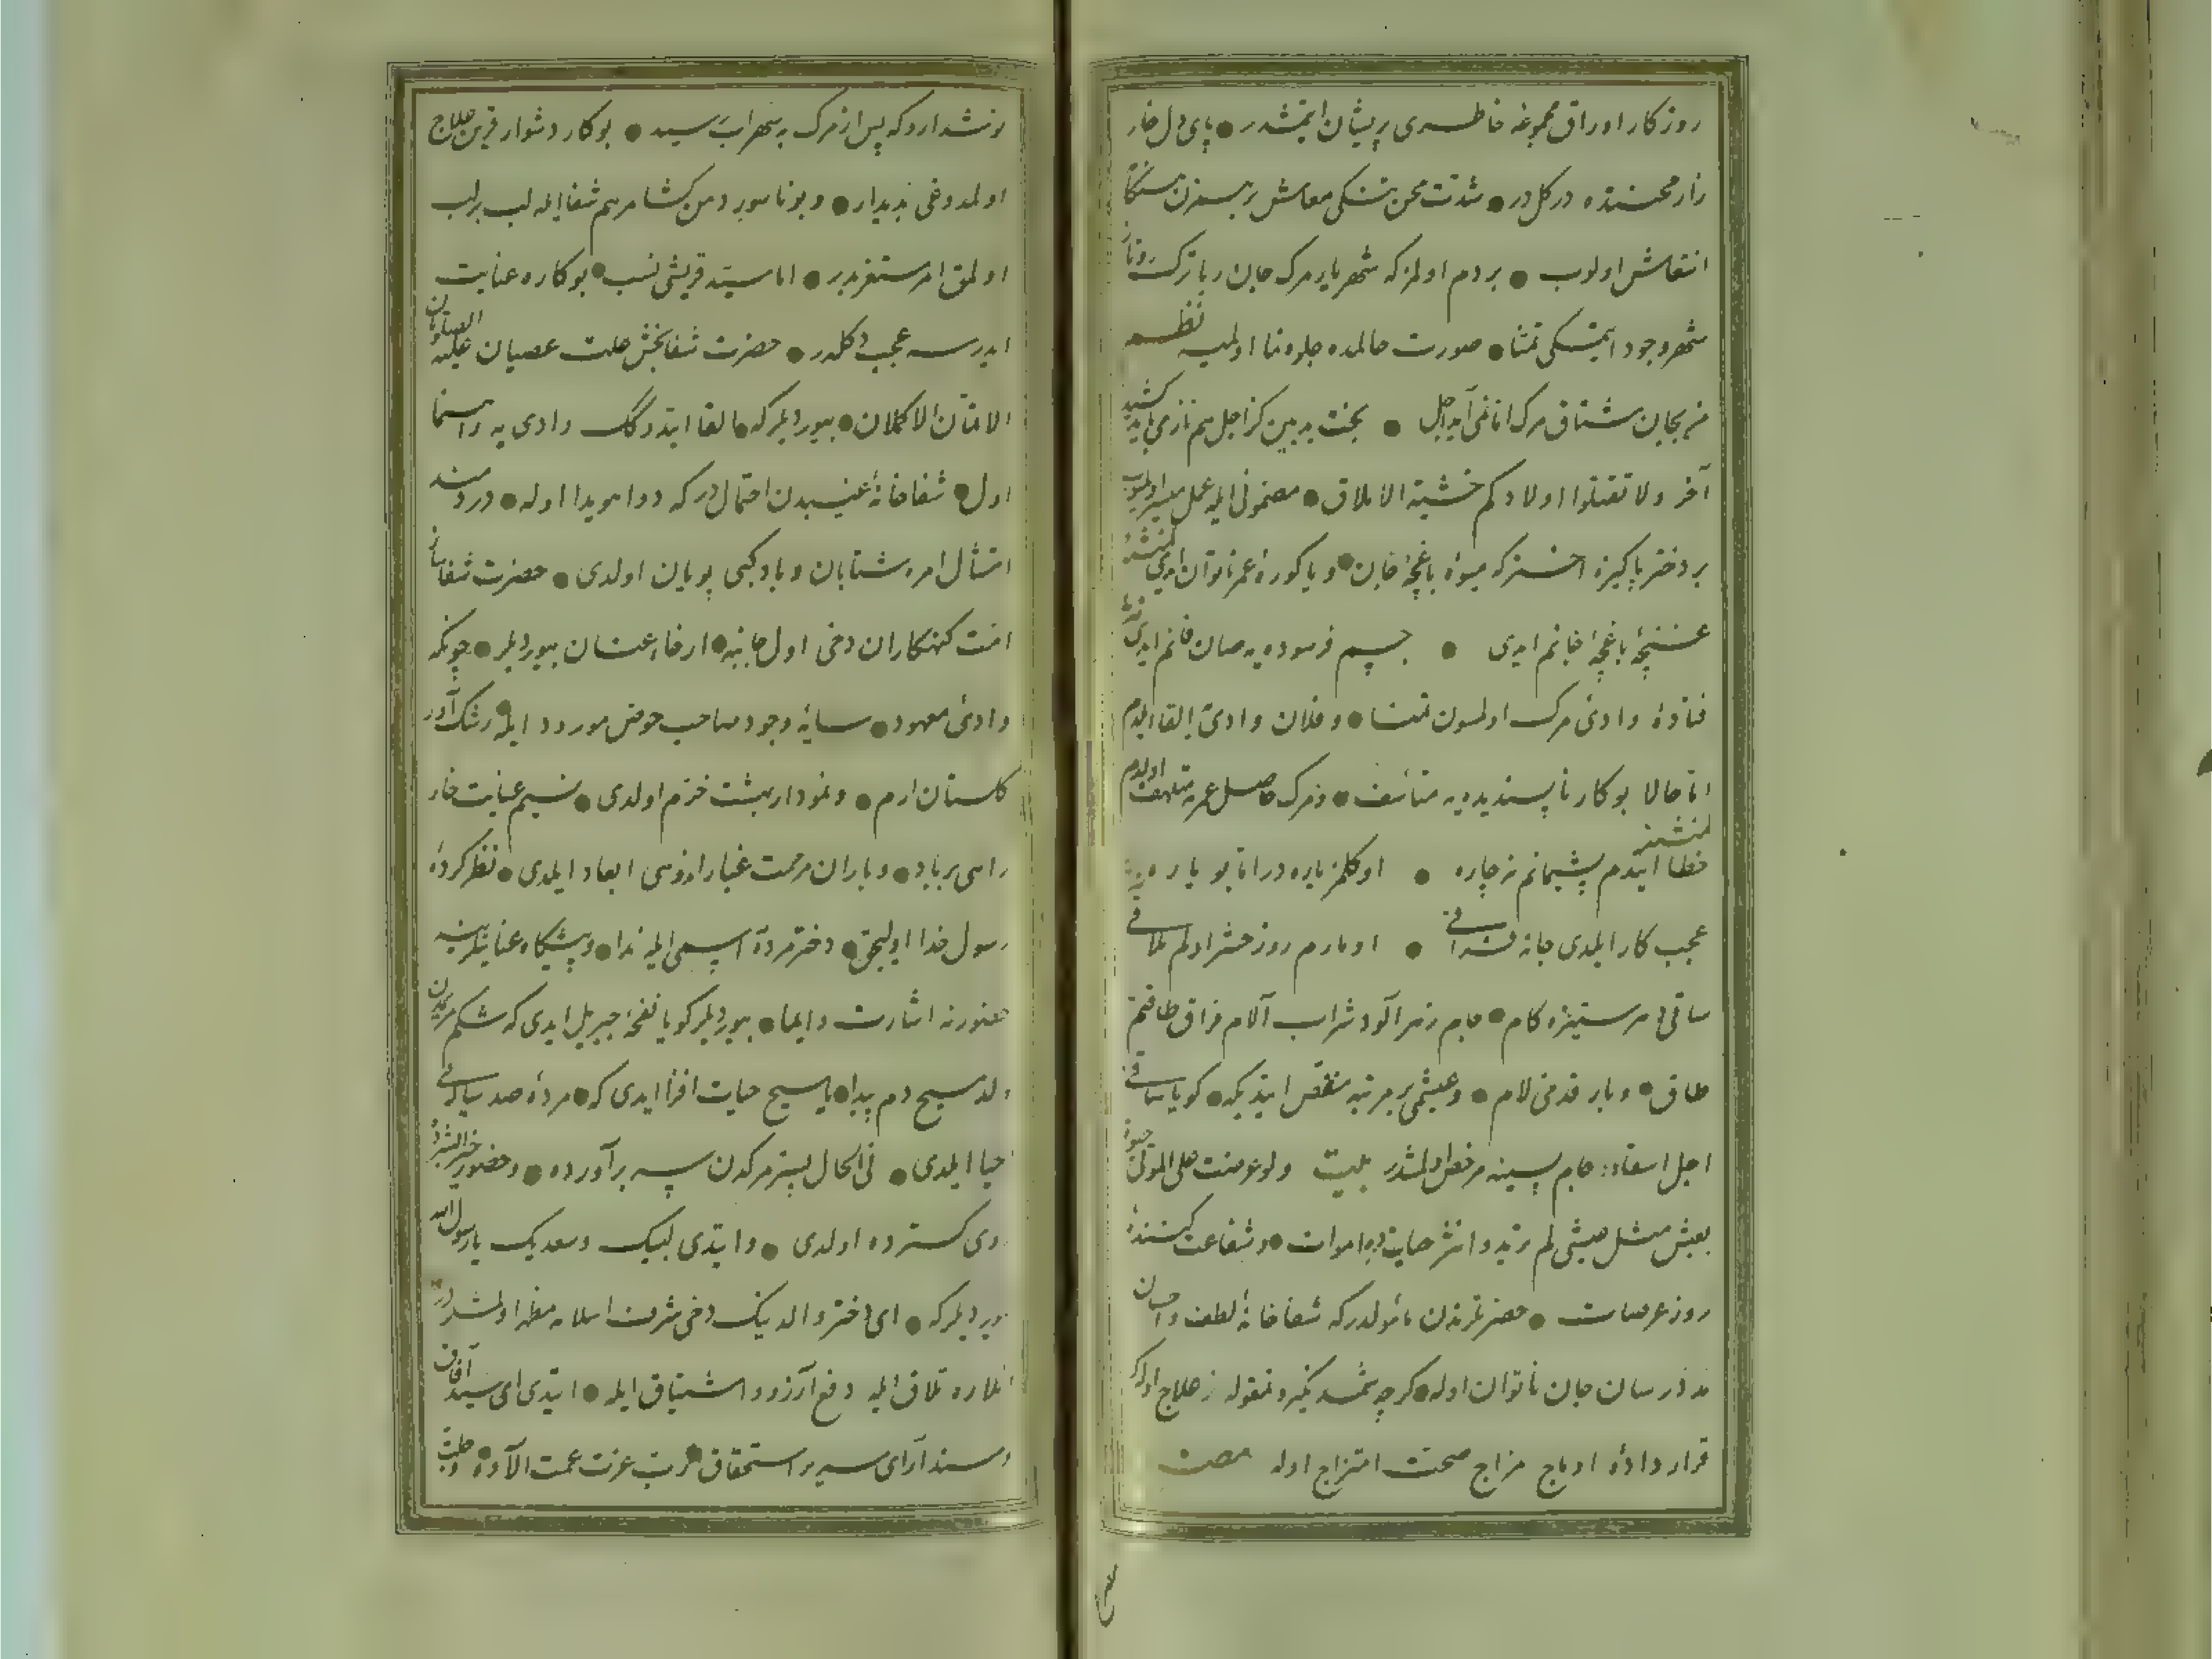 روزكار اوراق مجموعهٔ خاطری پریشان ایتمشدر • پای دل خار
زار محنتده در كلدر • شدت محن تنكی معاش
انتعاش اولوب • بر دم اولمز كه شهریار مرك جان ربا ترك
شهر وجود ایتمسی تمنا • صورت حالمده جلوه نما اولمیه نظم
من بجان مشتاق مرك اما نمی آید اجل • بخت بد بین كز اجل هم ناز می باید كشید
آخر ولا تقتلوا اولادكم خشیة الاملاق • مضمونی ایله عمل میسر اولمیوب
بر دختر پاكیزه اخترم كه میوهٔ باغچهٔ جان • و یا كورهٔ عمر ناتوان ایدی
غنچهٔ باغچهٔ جانم ایدی • جسم فرسوده یه صان قانم ایدی
فتادهٔ وادی مرك اولسون تمنا • و فلان وادی یه القا ایلدم
اما حالا بو كار ناپسندیده یه متأسف • و مرك حاصل عمره متلهف اولدم
خطا ایتدم پشیمانم نه چاره • اوكلمز یاره در اما بو یاره
عجب كار ایلدی جانه فراقی • اومارم روز حشر اوله تلاقی
ساقی دهر ستیزه كام • جام زهر آلود شراب آلام فراق طاقتم
طاق • و بار قدمی لام • و عیشمی بر مرتبه منغص ایتدیكه • كویا ساقی
اجل اسقاده جام بیت ولو عرضت علی الموتی
بعیش مثل عیشی لم تریدوا نشر حیات ده اموات • و شفاعت كننده
روز عرصات • حضرتكزدن مأمولدر كه شفاخانهٔ لطف و احسان
مدد رسان جان ناتوان اوله • كرچه علاج اوله كه
قرار دادهٔ ازواج مزاج صحت امتزاج اوله مصرع
نوشدارو كه پس از مرك به سهراب رسید • بو كار دشوار قرین علاج
اولمدوغی پدیدار • و بو ناسور دهن كشا مرهم شفا ایله لب بر لب
اولمق امر مستغربدر • اما سید قریشی نسب • بو كاره عنایت
ایدرسه عجب دكلدر • حضرت شفابخش علت عصیان علیه الصلوتان
الاتمان الاكملان • بیوردیلر كه • القا ایتدوكك وادی یه راهنما
اول • شفاخانهٔ غیبیدن احتمالدر كه دوا هویدا اوله • دردمند
امتثال امره شتابان و باد كبی پویان اولدی • حضرت شفاساز
امت كنهكاران دخی اول جانبه • ارخاء عنان بیوردیلر • چونكه
وادی معهود • سایهٔ وجود صاحب حوض مورود ایله • رشك آور
كلستان ارم • و نمودار بهشت خرم اولدی • نسیم عنایت خار
راهی بر باد • و باران مرحمت غبار اندوهی ابعاد ایلدی • نظر كردهٔ
رسول خدا اولیجق • دختر مرده اسمی ایله ندا • و پیشكاه عنایتلرینه
حضورنه اشارت و ایما • بیوردیلر كویا نفخهٔ جبریل ایدی كه شكم مریمدن
ولد مسیح دم پیدا • یا مسیح حیات افزا ایدی كه • مردهٔ صد ساله یی
احیا ایلدی • فی الحال بستر مركدن سر برآورده • و حضور خیر البشرده
روی كسترده اولدی • و ایتدی لبیك و سعدیك یا رسول الله
بیوردیلر كه • ای دختر والدینك دخی شرف اسلامه مظهر اولمشلردر
انلاره تلاقی ایله دفع آرزو و اشتیاق ایله • ایتدی ای سید آفاق
و مسند آرای سریر استحقاق • رب عزت عمت الآؤه • و جلت